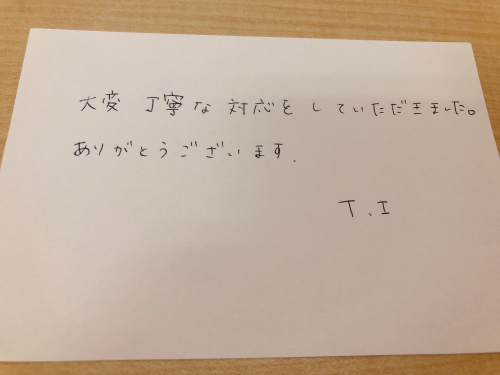 大変 丁寧な 対応を していただきました。
ありがとうございます.
T.I